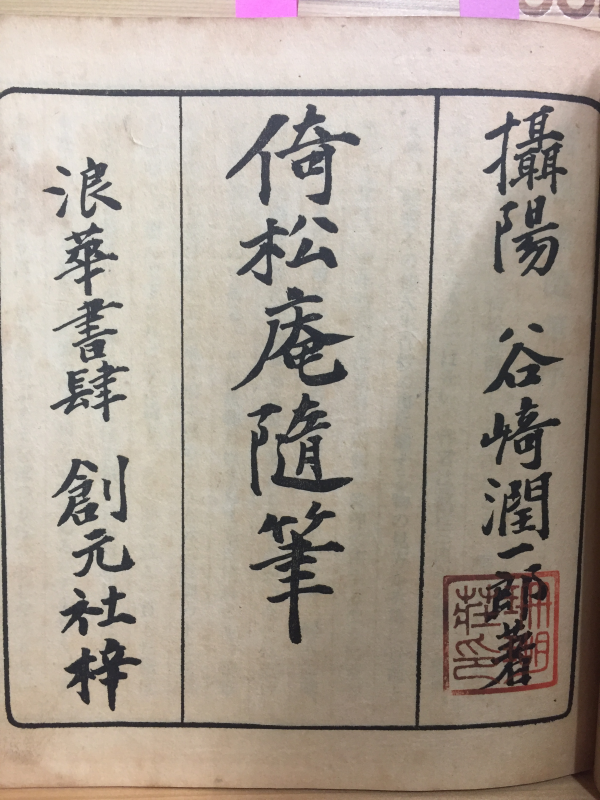 攝陽 谷﨑潤一郎著
倚松庵隨筆
浪華書肆 創元社梓